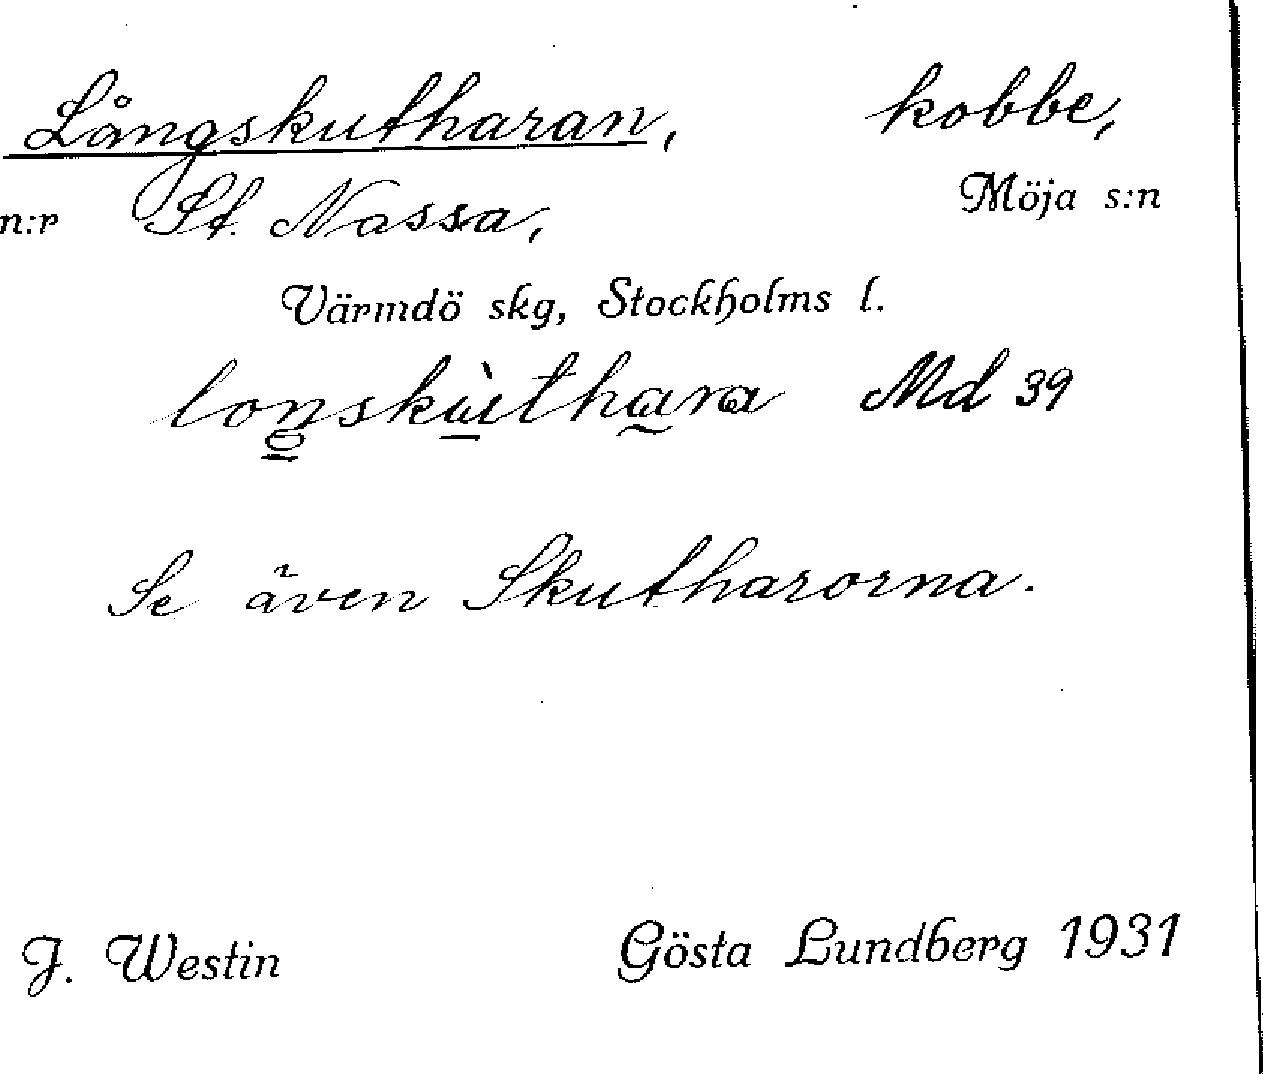 Långskutharan, kobbe,
n:r St. Nassa, Möja s:n
Värmdö skg, Stockholms l.
loŋskùthara Md 39
Se även Skutharorna.
J. Westin Gösta Lundberg 1931